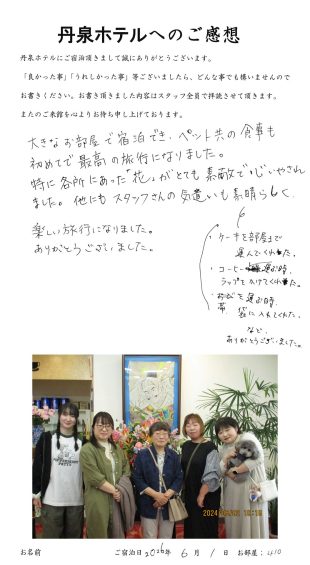 丹泉ホテルへのご感想
丹泉ホテルにご宿泊頂きまして誠にありがとうございます。
「良かった事」「うれしかった事」等ございましたら、どんな事でも構いませんので
お書きください。お書き頂きました内容はスタッフ全員で拝読させて頂きます。
またのご来館を心よりお待ち申し上げております。
大きなお部屋で宿泊でき、ペット共の食事も
初めてで最高の旅行になりました。
特に各所にあった「花」がとても素敵でいやされ
ました。他にもスタッフさんの気遣いも素晴らしく、
楽しい旅行になりました。
ありがとうございました。
・ケーキを部屋まで
運んでくれた。
・コーヒー運ぶ時、
ラップをかけてくれた。
を運ぶ時、
帯 袋に入れてくれた。
など、
ありがとうございました。
2024 10:16
お名前 ご宿泊日 2026年 6月 1日 お部屋：410